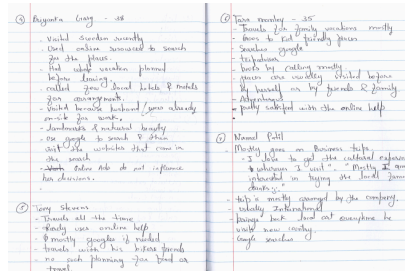 ④ Priyanka Garg - 38
- Visited Sweden recently
- Used online resources to search
for the places.
- Had whole vacation planned
before leaving.
- called few local hotels & motels
for arrangements.
- Visited because husband was already
on-site for work.
- landmarks & natural beauty
- Use google to search & then
visit the websites that come in
the search
- Online Ads do not influence
her decisions.
⑤ Tony Stevens
- Travels all the time
- Rarely uses online help
- mostly googles if needed
- travels with his friends
- no such planning for food or
travel
- 35
- Travels for family vacations mostly
- Goes to kid friendly places
- Searches google
- Tripadvisor
- books by calling mostly
- places are usually visited before
by herself or by friends & family
- Adventurous
- pretty satisfied with the online help
Patil
- Mostly goes on Business trips.
- "I love to get the cultural
I visit". "Mostly I am
interested in trying the local
drinks".
- trip is mostly arranged by the company.
- usually International
- brings local art everytime he
visits new country.
- Google searches